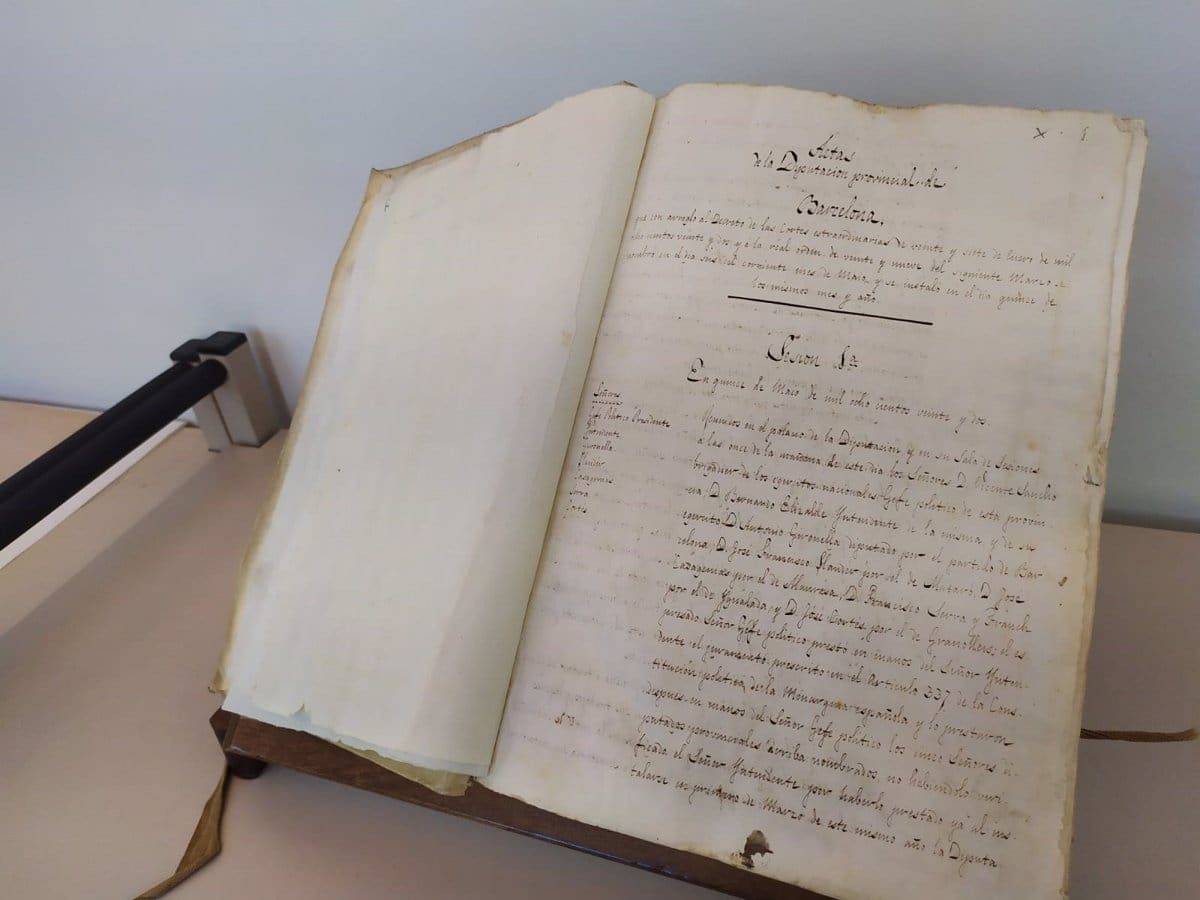 × 1.
Actas
de la Diputacion provincial de
Barcelona,
que con arreglo al Decreto de las Cortes estraordinarias de veinte y siete de Enero de mil
ocho cientos veinte y dos y a la real orden de veinte y nueve del siguiente Marzo se
en el dia del corriente mes de Maio, y se instaló en el dia quince de
los mismos mes y año.
Sesion 1ª
En quince de Maio de mil ocho cientos veinte y dos.
Señores
Gefe Politico Presidente
Yntendente
Gironella
Llauder
Casagemas
Serra
Cortes
Reunidos en el palacio de la Diputacion y en su Sala de Sesiones
a las once de la mañana de este dia los Señores D. Vicente Sancho
brigadier de los egercitos nacionales Gefe politico de esta provin-
cia, D. Bernardo Elizalde Yntendente de la misma y de su
egercito, D. Antonio Gironella diputado por el partido de Bar
celona, D. Jose Francisco Llauder por el de Mataró, D. Jose
Casagemas por el de Manresa, D. Francisco Serra y Franch
por el de Ygualada, y D. José Cortes por el de Granollers; el es
presado Señor Gefe politico prestó en manos del Señor Ynten-
dente el juramento prescrito en el Articulo 337 de la Cons-
titucion politica de la Monarquia española y lo prestaron
despues en manos del Señor Gefe politico los Señores di-
putados provinciales arriba nombrados no habiendolo veri-
ficado el Señor Yntendente por haberlo prestado ya al ins-
talarse en primero de Marzo de este mismo año la Diputa